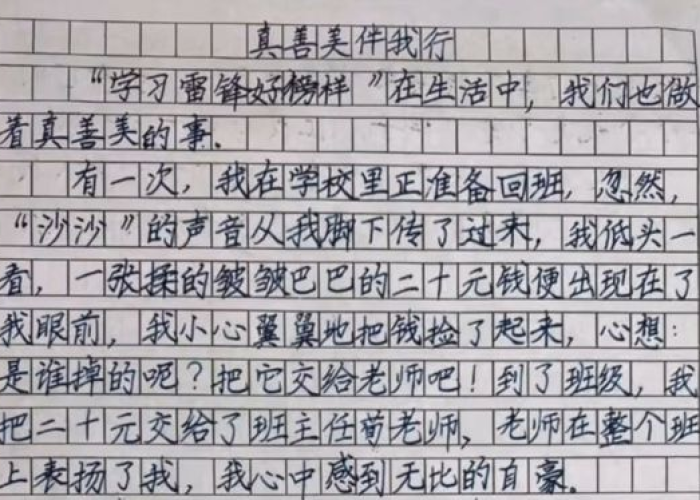 真善美伴我行
“学习雷锋好榜样”在生活中，我们也做
着真善美的事.
有一次，我在学校里正准备回班，忽然，
“沙沙”的声音从我脚下传了过来，我低头一
看，一张揉的皱皱巴巴的二十元钱便出现在了
我眼前，我小心翼翼地把钱捡了起来，心想：
是谁掉的呢？把它交给老师吧！到了班级，我
把二十元交给了班主任荀老师，老师在整个班
上表扬了我，我心中感到无比的自豪.